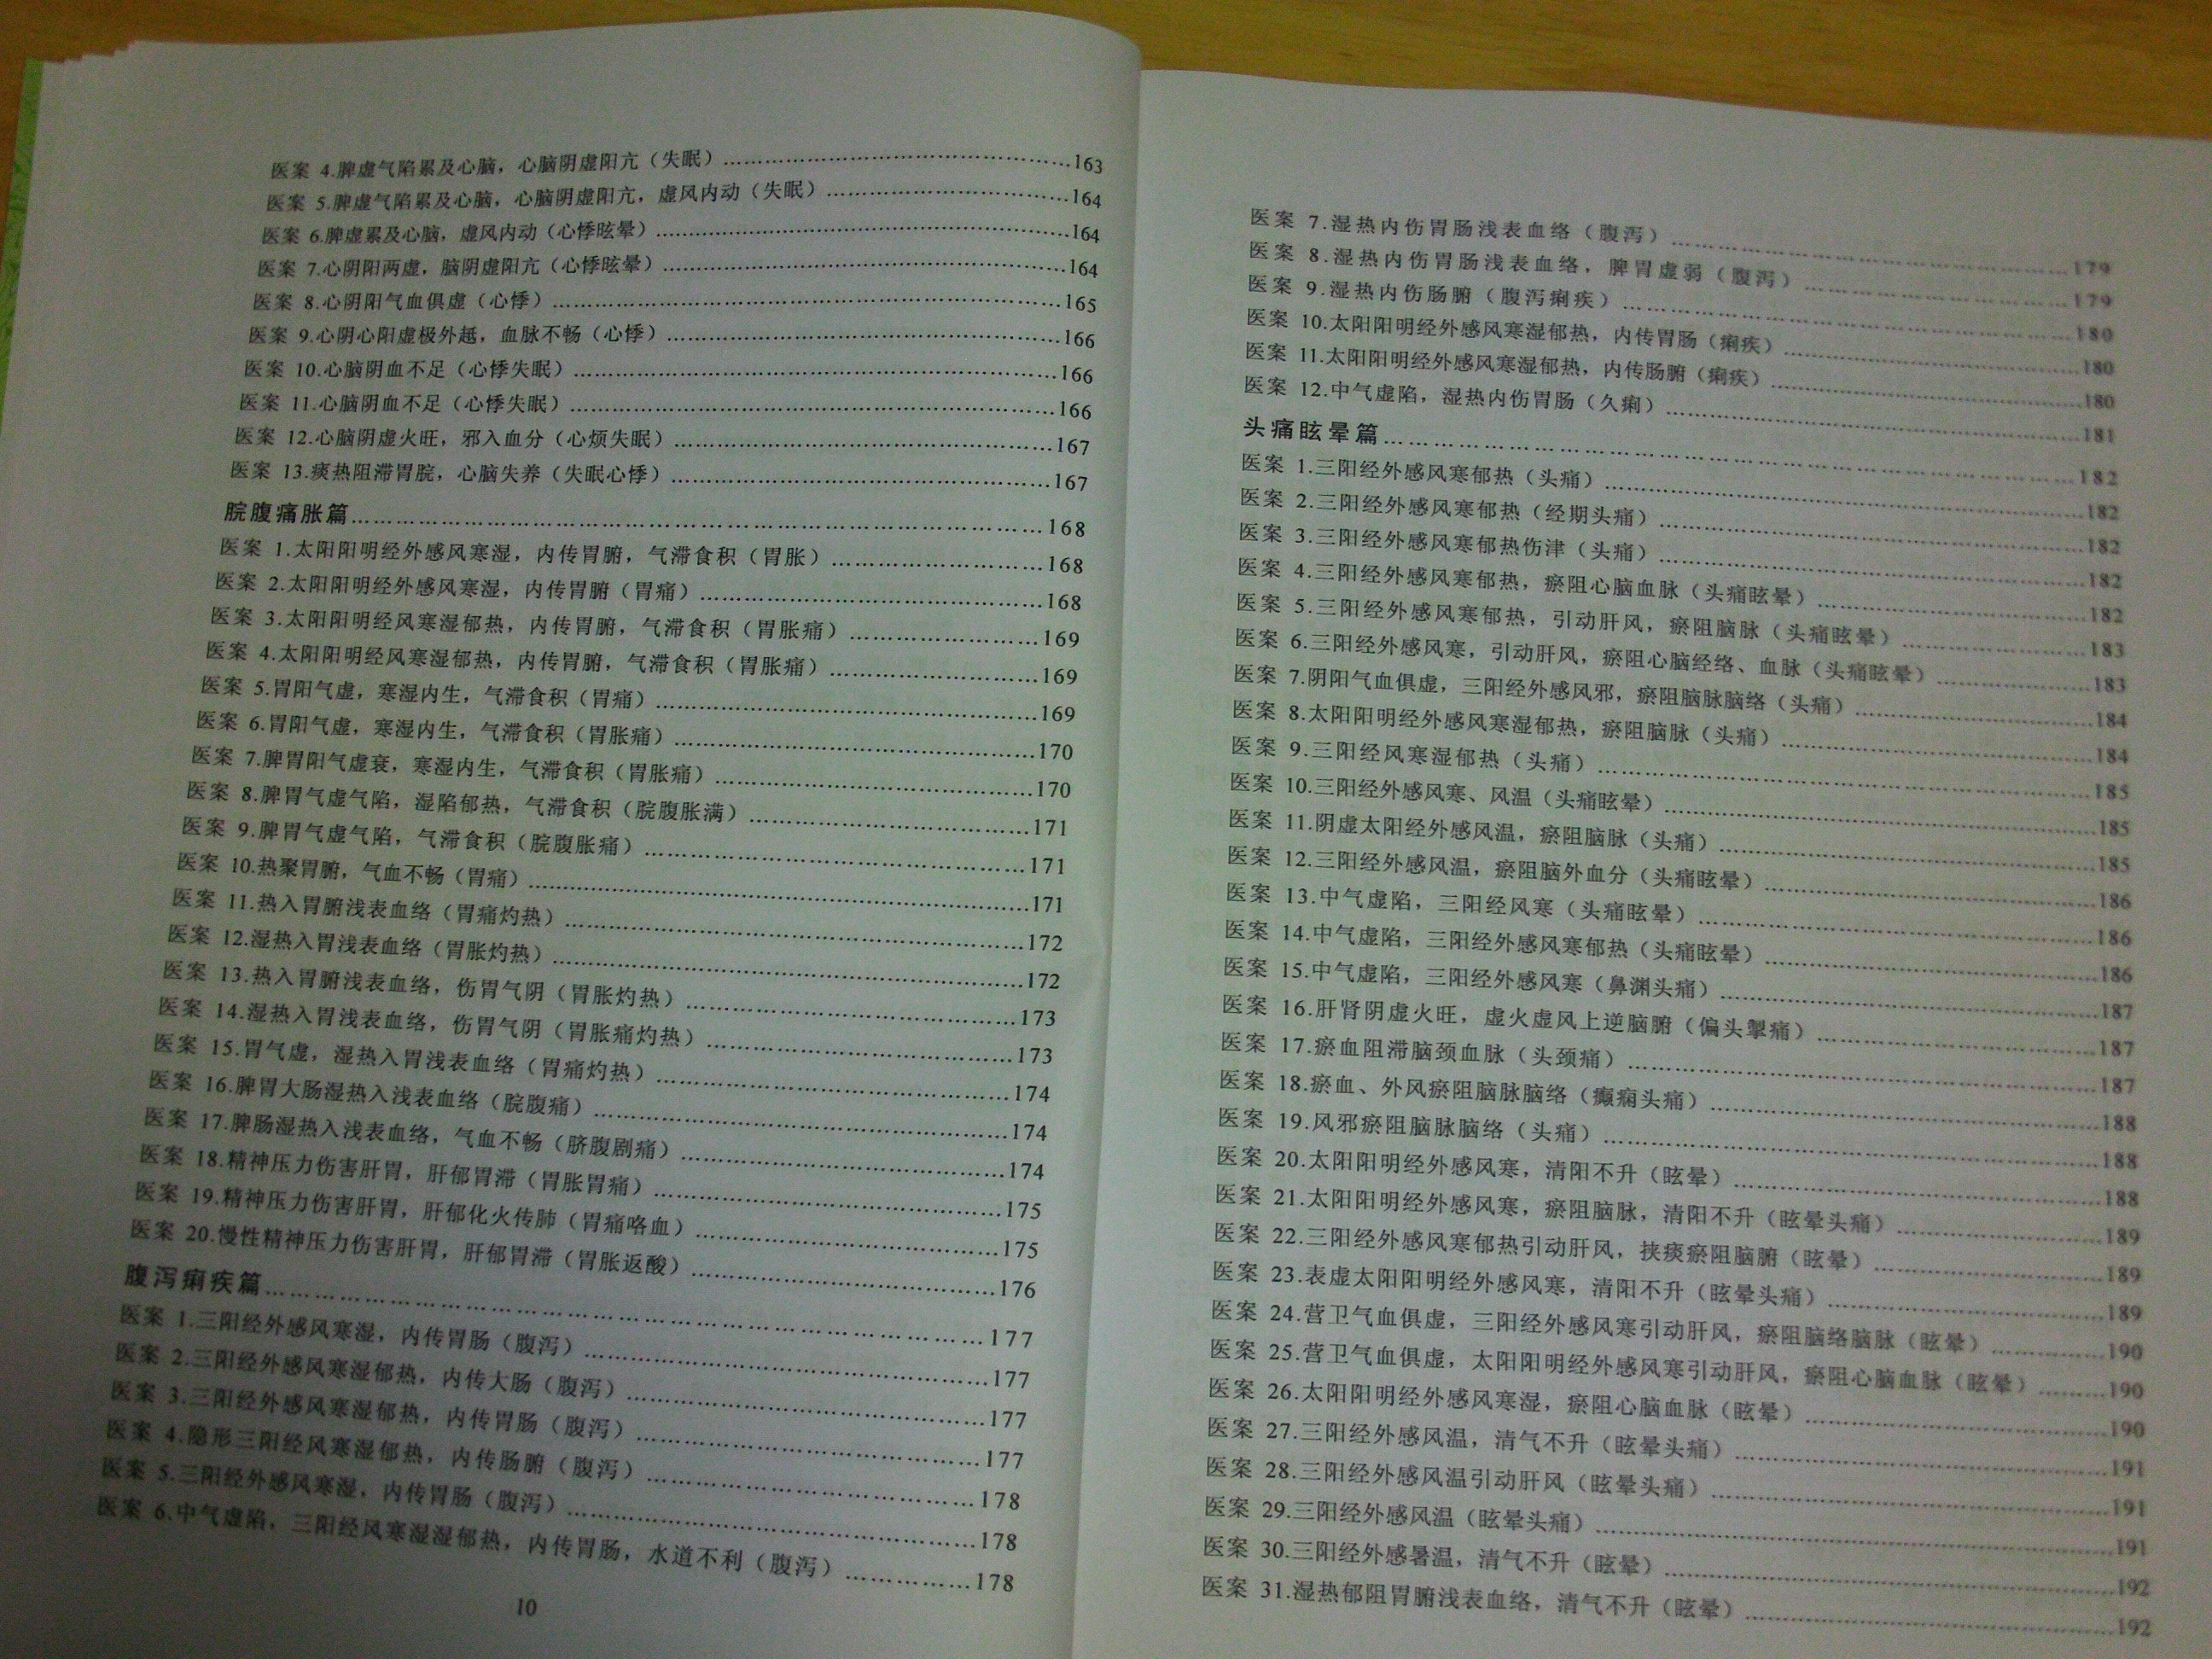 医案 4.脾虚气陷累及心脑，心脑阴虚阳亢（失眠）……163
医案 5.脾虚气陷累及心脑，心脑阴虚阳亢，虚风内动（失眠）……164
医案 6.脾虚累及心脑，虚风内动（心悸眩晕）……164
医案 7.心阴阳两虚，脑阴虚阳亢（心悸眩晕）……164
医案 8.心阴阳气血俱虚（心悸）……165
医案 9.心阴心阳虚极外越，血脉不畅（心悸）……166
医案 10.心脑阴血不足（心悸失眠）……166
医案 11.心脑阴血不足（心悸失眠）……166
医案 12.心脑阴虚火旺，邪入血分（心烦失眠）……167
医案 13.痰热阻滞胃脘，心脑失养（失眠心悸）……167
脘腹痛胀篇……168
医案 1.太阳阳明经外感风寒湿，内传胃腑，气滞食积（胃胀）……168
医案 2.太阳阳明经外感风寒湿，内传胃腑（胃痛）……168
医案 3.太阳阳明经风寒湿郁热，内传胃腑，气滞食积（胃胀痛）……169
医案 4.太阳阳明经风寒湿郁热，内传胃腑，气滞食积（胃胀痛）……169
医案 5.胃阳气虚，寒湿内生，气滞食积（胃痛）……169
医案 6.胃阳气虚，寒湿内生，气滞食积（胃胀痛）……170
医案 7.脾胃阳气虚衰，寒湿内生，气滞食积（胃胀痛）……170
医案 8.脾胃气虚气陷，湿陷郁热，气滞食积（脘腹胀满）……171
医案 9.脾胃气虚气陷，气滞食积（脘腹胀痛）……171
医案 10.热聚胃腑，气血不畅（胃痛）……171
医案 11.热入胃腑浅表血络（胃痛灼热）……172
医案 12.湿热入胃浅表血络（胃胀灼热）……172
医案 13.热入胃腑浅表血络，伤胃气阴（胃胀灼热）……173
医案 14.湿热入胃浅表血络，伤胃气阴（胃胀痛灼热）……173
医案 15.胃气虚，湿热入胃浅表血络（胃痛灼热）……174
医案 16.脾胃大肠湿热入浅表血络（脘腹痛）……174
医案 17.脾肠湿热入浅表血络，气血不畅（脐腹剧痛）……174
医案 18.精神压力伤害肝胃，肝郁胃滞（胃胀胃痛）……175
医案 19.精神压力伤害肝胃，肝郁化火传肺（胃痛咯血）……175
医案 20.慢性精神压力伤害肝胃，肝郁胃滞（胃胀返酸）……176
腹泻痢疾篇……177
医案 1.三阳经外感风寒湿，内传胃肠（腹泻）……177
医案 2.三阳经外感风寒湿郁热，内传大肠（腹泻）……177
医案 3.三阳经外感风寒湿郁热，内传胃肠（腹泻）……177
医案 4.隐形三阳经风寒湿郁热，内传肠腑（腹泻）……178
医案 5.三阳经外感风寒湿，内传胃肠（腹泻）……178
医案 6.中气虚陷，三阳经风寒湿湿郁热，内传胃肠，水道不利（腹泻）……178
10
医案 7.湿热内伤胃肠浅表血络（腹泻）……179
医案 8.湿热内伤胃肠浅表血络，脾胃虚弱（腹泻）……179
医案 9.湿热内伤肠腑（腹泻痢疾）……180
医案 10.太阳阳明经外感风寒湿郁热，内传胃肠（痢疾）……180
医案 11.太阳阳明经外感风寒湿郁热，内传肠腑（痢疾）……180
医案 12.中气虚陷，湿热内伤胃肠（久痢）……181
头痛眩晕篇……182
医案 1.三阳经外感风寒郁热（头痛）……182
医案 2.三阳经外感风寒郁热（经期头痛）……182
医案 3.三阳经外感风寒郁热伤津（头痛）……182
医案 4.三阳经外感风寒郁热，瘀阻心脑血脉（头痛眩晕）……182
医案 5.三阳经外感风寒郁热，引动肝风，瘀阻脑脉（头痛眩晕）……183
医案 6.三阳经外感风寒，引动肝风，瘀阻心脑经络、血脉（头痛眩晕）……183
医案 7.阴阳气血俱虚，三阳经外感风邪，瘀阻脑脉脑络（头痛）……184
医案 8.太阳阳明经外感风寒湿郁热，瘀阻脑脉（头痛）……184
医案 9.三阳经风寒湿郁热（头痛）……185
医案 10.三阳经外感风寒、风温（头痛眩晕）……185
医案 11.阴虚太阳经外感风温，瘀阻脑脉（头痛）……185
医案 12.三阳经外感风温，瘀阻脑外血分（头痛眩晕）……186
医案 13.中气虚陷，三阳经风寒（头痛眩晕）……186
医案 14.中气虚陷，三阳经外感风寒郁热（头痛眩晕）……186
医案 15.中气虚陷，三阳经外感风寒（鼻渊头痛）……187
医案 16.肝肾阴虚火旺，虚火虚风上逆脑腑（偏头掣痛）……187
医案 17.瘀血阻滞脑颈血脉（头颈痛）……187
医案 18.瘀血、外风瘀阻脑脉脑络（癫痫头痛）……188
医案 19.风邪瘀阻脑脉脑络（头痛）……188
医案 20.太阳阳明经外感风寒，清阳不升（眩晕）……188
医案 21.太阳阳明经外感风寒，瘀阻脑脉，清阳不升（眩晕头痛）……189
医案 22.三阳经外感风寒郁热引动肝风，挟痰瘀阻脑腑（眩晕）……189
医案 23.表虚太阳阳明经外感风寒，清阳不升（眩晕头痛）……189
医案 24.营卫气血俱虚，三阳经外感风寒引动肝风，瘀阻脑络脑脉（眩晕）……190
医案 25.营卫气血俱虚，太阳阳明经外感风寒引动肝风，瘀阻心脑血脉（眩晕）……190
医案 26.太阳阳明经外感风寒湿，瘀阻心脑血脉（眩晕）……190
医案 27.三阳经外感风温，清气不升（眩晕头痛）……191
医案 28.三阳经外感风温引动肝风（眩晕头痛）……191
医案 29.三阳经外感风温（眩晕头痛）……191
医案 30.三阳经外感暑温，清气不升（眩晕）……192
医案 31.湿热郁阻胃腑浅表血络，清气不升（眩晕）……192